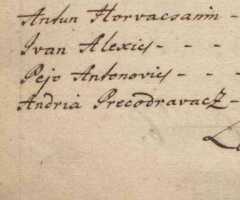 Antun Horvacsanin -
Ivan Alexics - - -
Pejo Antonovics - - -
Andria Precodravacz -